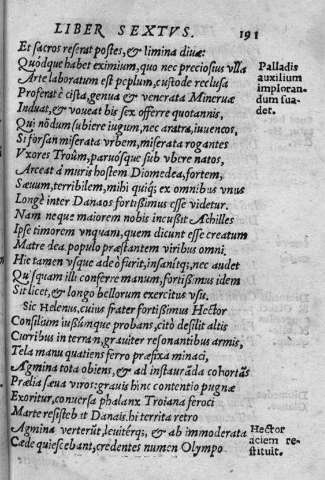 LIBER SEXTVS. 191
Et sacros reserat postes, & limina diuæ:
Quódque habet eximium, quo nec preciosius vlla
Arte laboratum est peplum, custode reclusa
Proferat è cista, genua & venerata Mineruæ
Induat, & voueat bis sex offerre quotannis,
Qui nõdum subiere iugum, nec aratra, iuuencos,
Si forsan miserata vrbem, miserata rogantes
Vxores Troûm, paruósque sub vbere natos,
Arceat à muris hostem Diomedea, fortem,
Sæuum, terribilem, mihi quíq; ex omnibus vnus
Longè inter Danaos fortißimus esse videtur.
Nam neque maiorem nobis incußit Achilles
Ipse timorem vnquam, quem dicunt esse creatum
Matre dea, populo præstantem viribus omni.
Hic tamen vsque adeò furit, insanítq;, nec audet
Quisquam illi conferre manum, fortißimus idem
Sit licet, & longo bellorum exercitus vsu.
Sic Helenus, cuius frater fortißimus Hector
Consilium iußúmque probans, citò desilit altis
Curribus in terram, grauiter resonantibus armis,
Tela manu quatiens ferro præfixa minaci,
Agmina tota obiens, & ad instaurãda cohortãs
Prælia sæua viros: grauis hinc contentio pugnæ
Exoritur, conuersa phalanx Troiana feroci
Marte resistebat Danais. hi territa retro
Agmina verterũt, leuitérq;, & ab immoderata
Cæde quiescebant, credentes numen Olympo
Palladis
auxilium
imploran
dum sua-
det.
Hector
aciem re-
stituit.